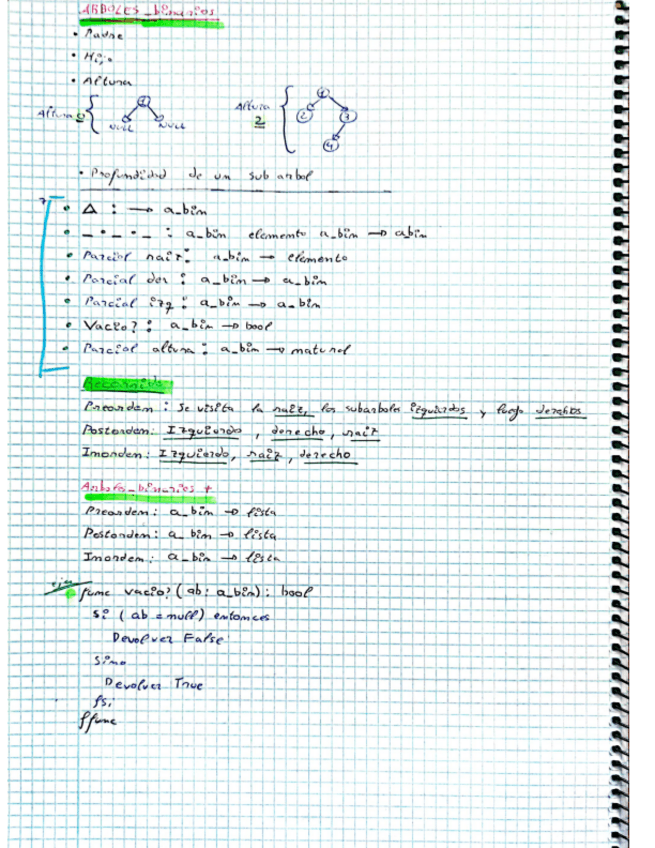 ARBOLES_binarios
• Padre
• Hijo
• Altura
Altura 0 { 1 NULL NULL
Altura 2 { 1 2 3 4
• Profundidad de un sub arbol
• Δ : → a_bin
• _ • _ • _ : a_bin elemento a_bin → abin
• Parcial raiz : a_bin → elemento
• Parcial der : a_bin → a_bin
• Parcial izq : a_bin → a_bin
• Vacio? : a_bin → bool
• Parcial altura : a_bin → natural
Recorrido
Preorden : Se visita la raiz, los subarboles izquierdos y luego derechos
Postorden: Izquierdo, derecho, raiz
Inorden: Izquierdo, raiz, derecho
Arboles_binarios +
Preorden: a_bin → lista
Postorden: a_bin → lista
Inorden: a_bin → lista
func vacio? (ab: a_bin): bool
si (ab = null) entonces
Devolver False
sino
Devolver True
fsi
ffunc